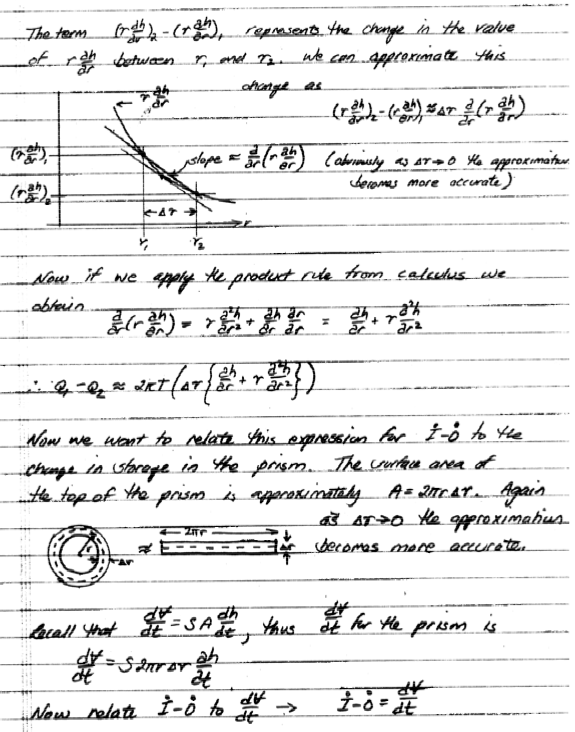 The term (r ∂h/∂r)₂ - (r ∂h/∂r)₁ represents the change in the value
of r ∂h/∂r between r₁ and r₂. We can approximate this
change as
r ∂h/∂r
(r ∂h/∂r)₂ - (r ∂h/∂r)₁ ≈ Δr ∂/∂r (r ∂h/∂r)
(r ∂h/∂r)₁
slope ≈ ∂/∂r (r ∂h/∂r) (obviously as Δr→0 the approximation
becomes more accurate)
(r ∂h/∂r)₂
Δr
r
r₁ r₂
Now if we apply the product rule from calculus we
obtain ∂/∂r (r ∂h/∂r) = r ∂²h/∂r² + ∂h/∂r ∂r/∂r = ∂h/∂r + r ∂²h/∂r²
∴ Q₁ - Q₂ ≈ 2πT (Δr {∂h/∂r + r ∂²h/∂r²})
Now we want to relate this expression for İ-Ȯ to the
change in storage in the prism. The surface area of
the top of the prism is approximately A = 2πrΔr. Again
as Δr→0 the approximation
2πr
r Δr ≈ Δr becomes more accurate.
Recall that dV/dt = SA dh/dt, thus dV/dt for the prism is
dV/dt = S2πrΔr ∂h/∂t
Now relate İ-Ȯ to dV/dt → İ-Ȯ = dV/dt